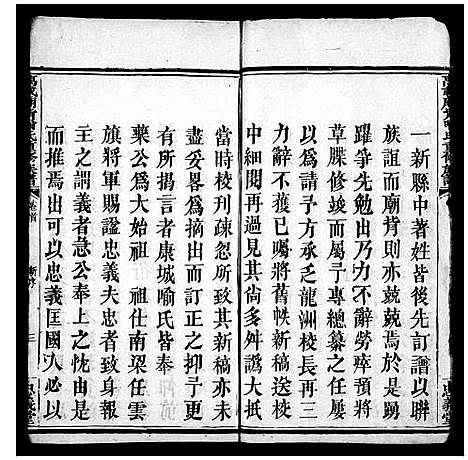 一新縣中著姓皆後先訂譜以聯
族誼而廟背則亦兢兢焉於是踴
躍爭先勉出乃力不辭勞瘁預將
草牒修竣而屬予專總纂之任屢
以爲請予方承乏龍洲校長再三
力辭不獲已囑將舊帙新稿送校
中細閱再過見其尙多舛譌大抵
當時校刋疎忽所致其新稿亦未
盡妥畧爲摘出而訂正之抑予更
有所揭言者康城喻氏皆奉
藥公爲大始祖祖仕南梁任雲
旗將軍賜諡忠義夫忠者致身報
主之謂義者急公奉上之忱由是
而推焉出可以忠義匡國入必以
新序
三
忠義堂